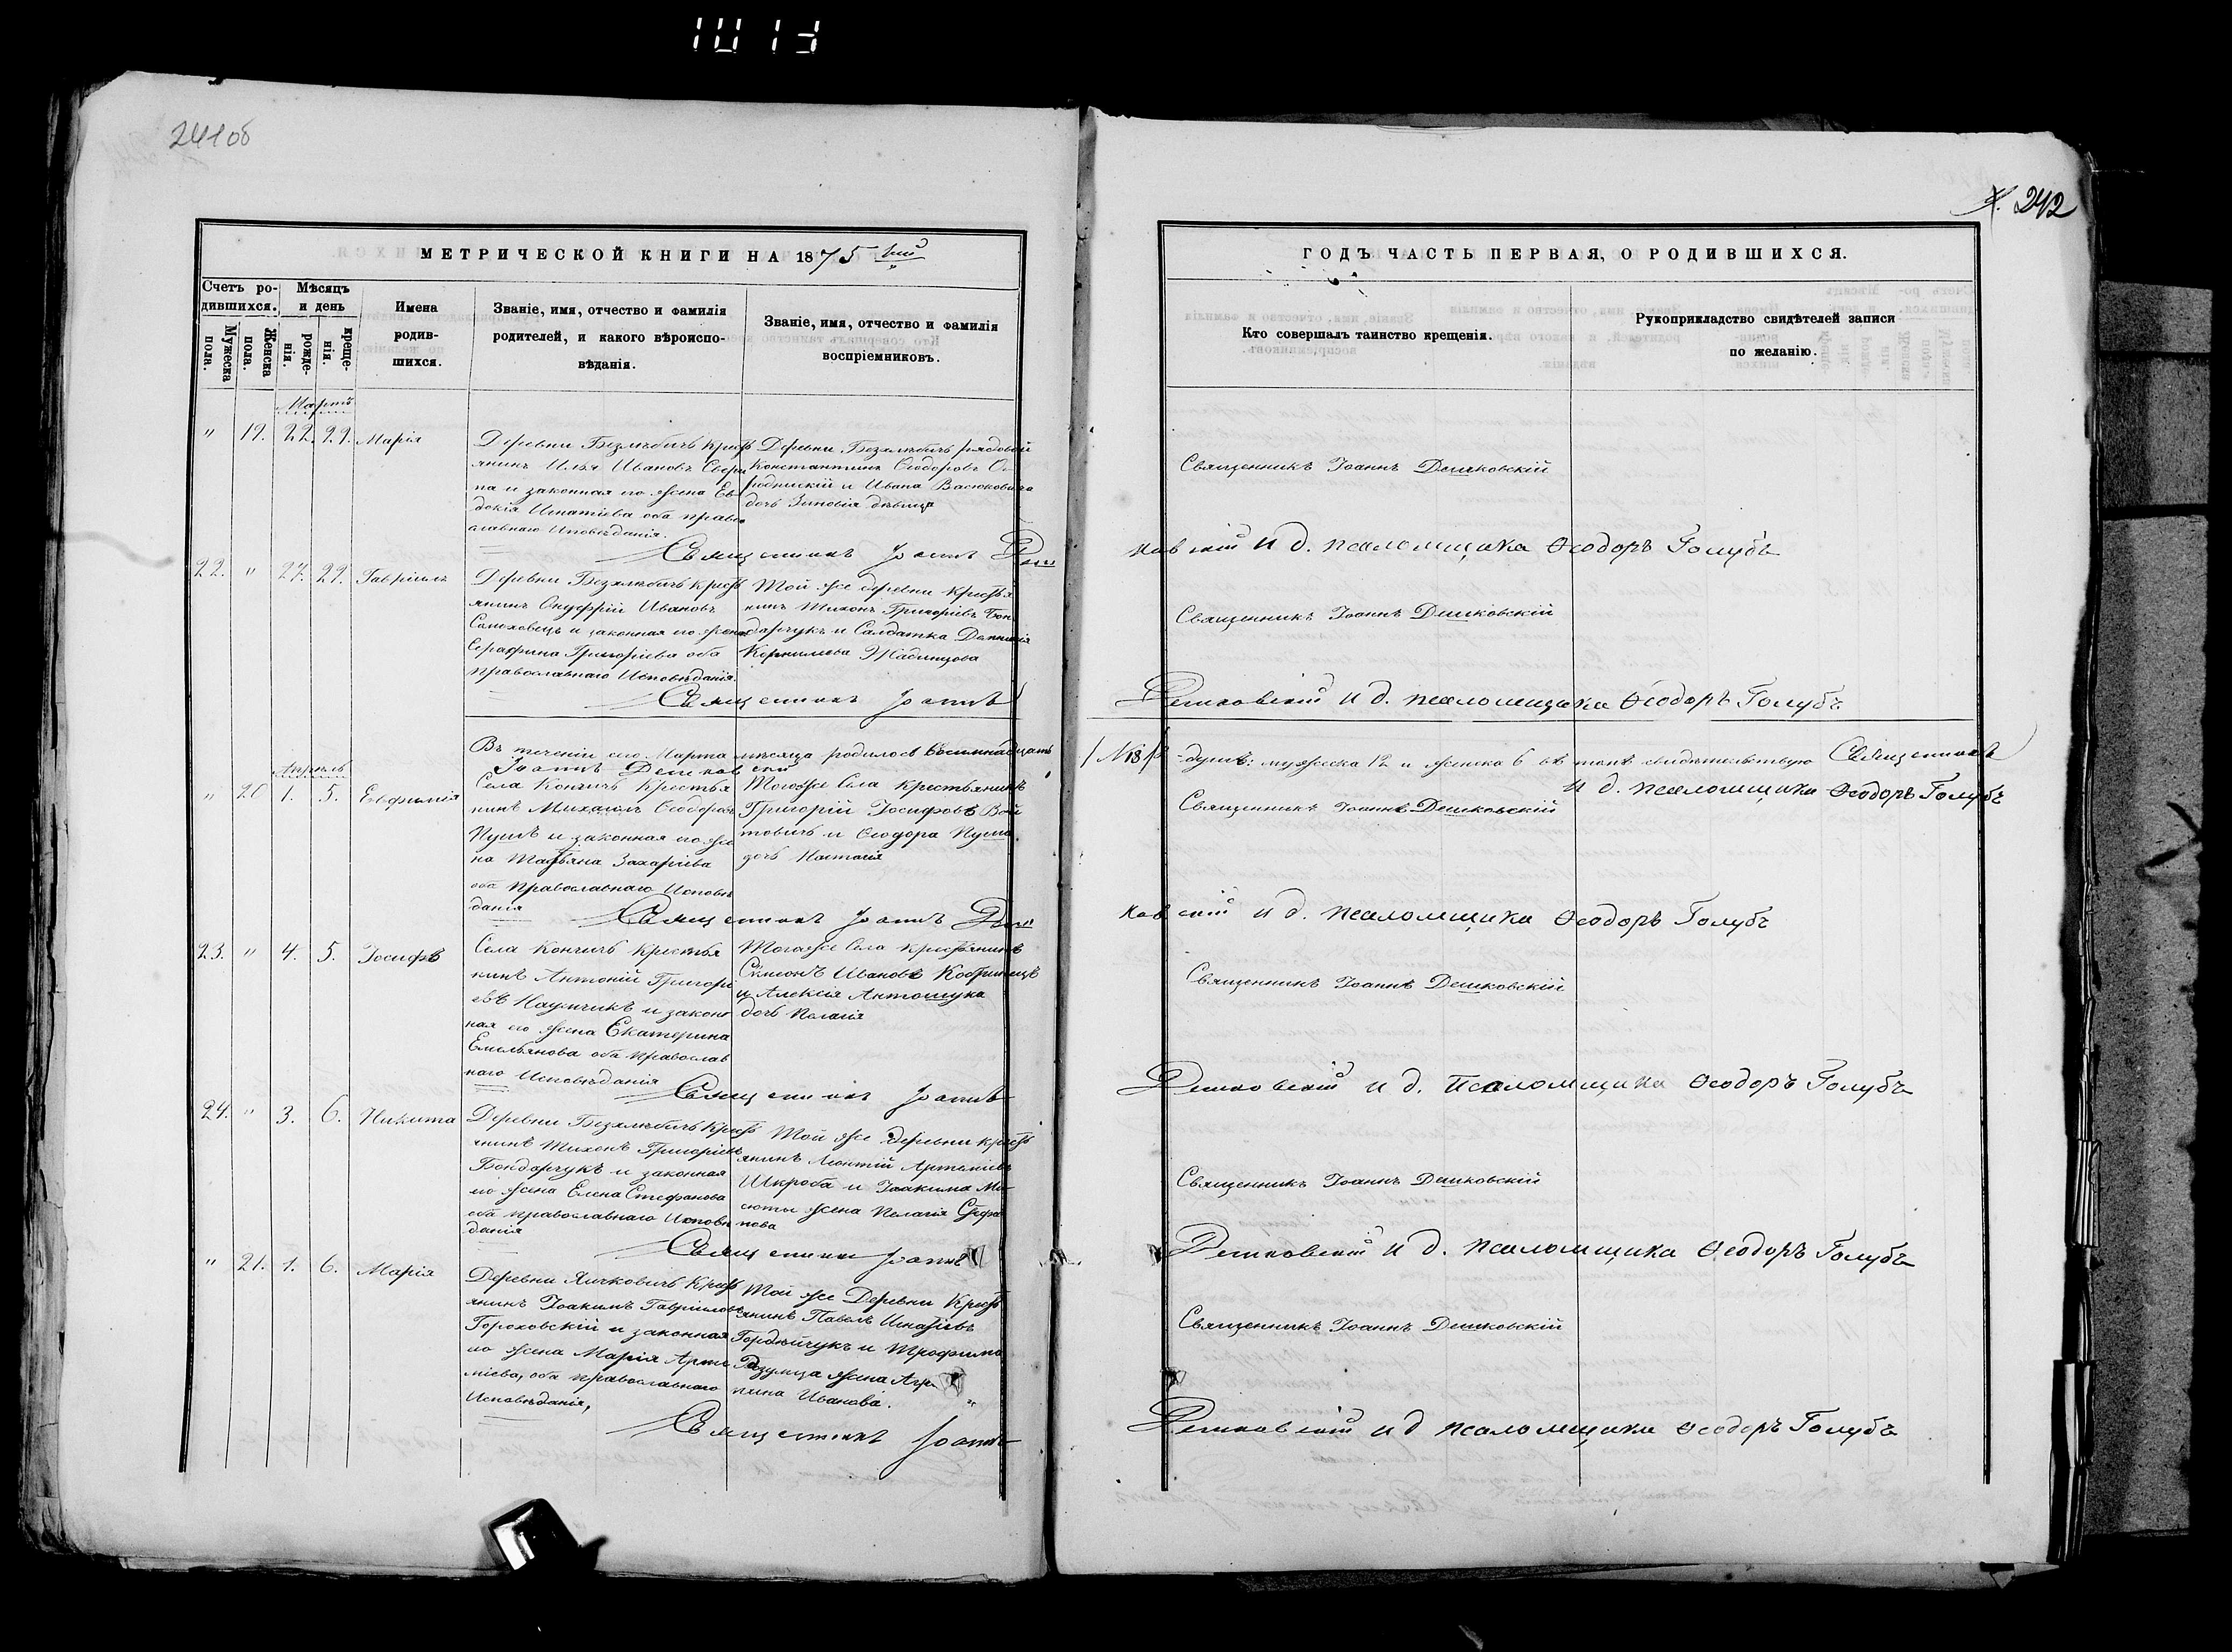 1013
241об
242
МЕТРИЧЕСКОЙ КНИГИ НА 1875
Счетъ ро-
дившихся.
Мужеска
пола.
Женска
пола.
Мѣсяцъ
и день
рожде-
нія.
креще-
нія.
Имена
родив-
шихся.
Званіе, имя, отчество и фамилія
родителей, и какого вѣроиспо-
вѣданія.
Званіе, имя, отчество и фамилія
воспріемниковъ.
Мартъ
" 19. 22. 29. Марія
Деревни Безлѣбичь Крест
янинъ Илья Ивановъ
на и законная его жена Ев
докія Игнатіева оба право
славнаго Исповѣданія.
Деревни Безлѣбичь рядовой
Константинъ Ѳеодоровъ
и Ивана Васюковича
дочь Зиновія дѣвица
Священникъ Іоаннъ Деш
22. " 27. 29. Гавріилъ
Деревни Безлѣбичь Крест
янинъ Онуфрій Ивановъ
и законная его жена
Серафима Григоріева оба
православнаго Исповѣданія.
Той же деревни Крестья
нинъ Тихонъ Григоріевъ Бон
дарчукъ и Салдатка
Корнилова
Священникъ Іоаннъ
Въ теченіи сего Марта мѣсяца родилось восимнадцать
Іоаннъ Дешковскій
Апрѣль
" 20 1. 5. Евфимія
Села Кончичь Крестья
нинъ Михаилъ Ѳеодоровъ
и законная его же
на Татьяна Захаріева
оба православнаго Исповѣ
данія
Тогоже Села Крестьянинъ
Григорій Іосифовъ Вой
товичь и Ѳеодора
дочь Настасія
Священникъ Іоаннъ Деш
23. " 4. 5. Іосифъ
Села Кончичь Крестья
нинъ Антоній Григорі
евъ Наумчикъ и закон
ная его жена Екатерина
Емельянова оба православ
наго Исповѣданія
Тогоже Села Крестьянинъ
Симіонъ Ивановъ Кобринецъ
и Алексія Антошука
дочь Пелагія
Священникъ Іоаннъ
24. " 3. 6. Никита
Деревни Безлѣбичь Крест
янинъ Тихонъ Григоріевъ
Бондарчукъ и законная
его жена Елена Стефанова
оба православнаго Исповѣ
данія
Той же деревни крест
янинъ Леонтій Артеміевъ
Шкроба и Іоакима Ма
сюты жена Пелагія Стефа
нова
Священникъ Іоаннъ
" 21. 1. 6. Марія
Деревни Ячковичь Крест
янинъ Іоакимъ Гавріиловъ
Гороховскій и законная
его жена Марія Арте
міева, оба православнаго
Исповѣданія,
Той же Деревни Крест
янинъ Павелъ Игнатіевъ
Гордѣйчукъ и Трофима
Разумца жена Агри
пина Иванова.
Священникъ Іоаннъ
ГОДЪ ЧАСТЬ ПЕРВАЯ, О РОДИВШИХСЯ.
Кто совершалъ таинство крещенія.
Рукоприкладство свидѣтелей записи
по желанію.
Священникъ Іоаннъ Дешковскій
ковскій и д. псаломщика Ѳеодоръ Голубъ
Священникъ Іоаннъ Дешковскій
Дешковскій и д. псаломщика Ѳеодоръ Голубъ
/№ 18/ душъ: мужеска 12 и женска 6 въ томъ свидѣтельствую Священникъ
и д. псаломщика Ѳеодоръ Голубъ
Священникъ Іоаннъ Дешковскій
ковскій и д. псаломщика Ѳеодоръ Голубъ
Священникъ Іоаннъ Дешковскій
Дешковскій и д. псаломщика Ѳеодоръ Голубъ
Священникъ Іоаннъ Дешковскій
Дешковскій и д. псаломщика Ѳеодоръ Голубъ
Священникъ Іоаннъ Дешковскій
Дешковскій и д псаломщика Ѳеодоръ Голубъ